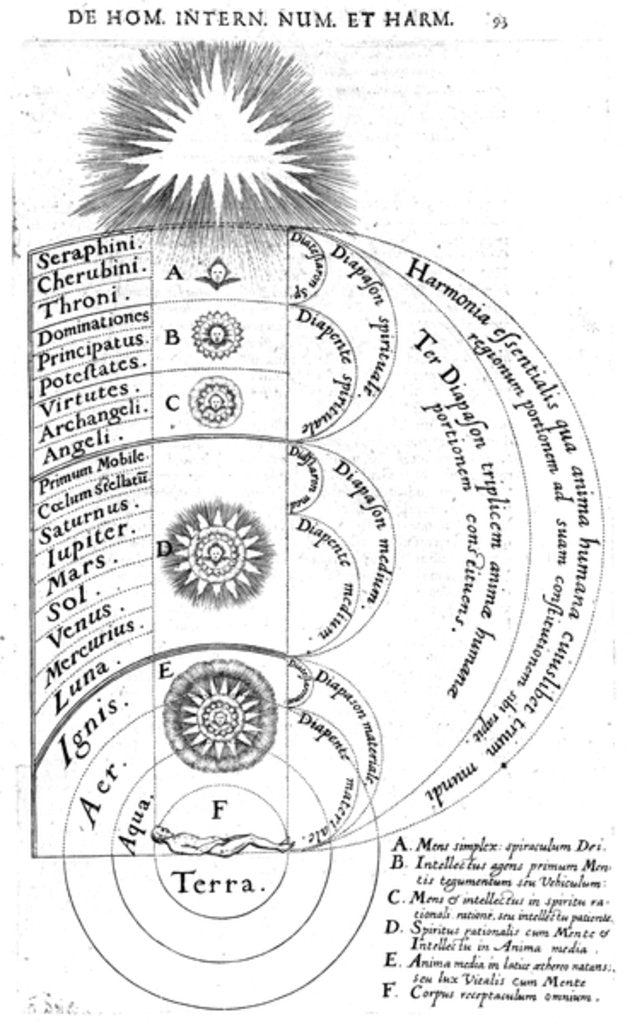 DE HOM. INTERN. NUM. ET HARM. 93
Seraphini.
Cherubini.
Throni.
Dominationes
Principatus.
Potestates.
Virtutes.
Archangeli.
Angeli.
Primum Mobile
Cœlum Stellatū
Saturnus.
Iupiter.
Mars.
Sol.
Venus.
Mercurius.
Luna.
Ignis.
Aer.
Aqua.
Terra.
A
B
C
D
E
F
Diatessaron sp
Diapason spirituale.
Diapente spirituale
Diatessaron med
Diapason medium.
Diapente medium.
Diapason materiale
Diapente materiale.
Ter Diapason triplicem animæ humanæ
portionem constituens.
Harmonia essentialis qua anima humana cuiuslibet trium
regionum portionem ad suam constitutionem sibi rapit.
mundi
A. Mens simplex: spiraculum Dei.
B. Intellectus agens primum Men-
tis tegumentum seu Vehiculum:
C. Mens & intellectus in spiritu ra-
tionali, ratione, seu intellectu patiente.
D. Spiritus rationalis cum Mente &
Intellectu in Anima media.
E. Anima media in latice æthereo natans:,
seu lux Vitalis cum Mente
F. Corpus receptaculum omnium.